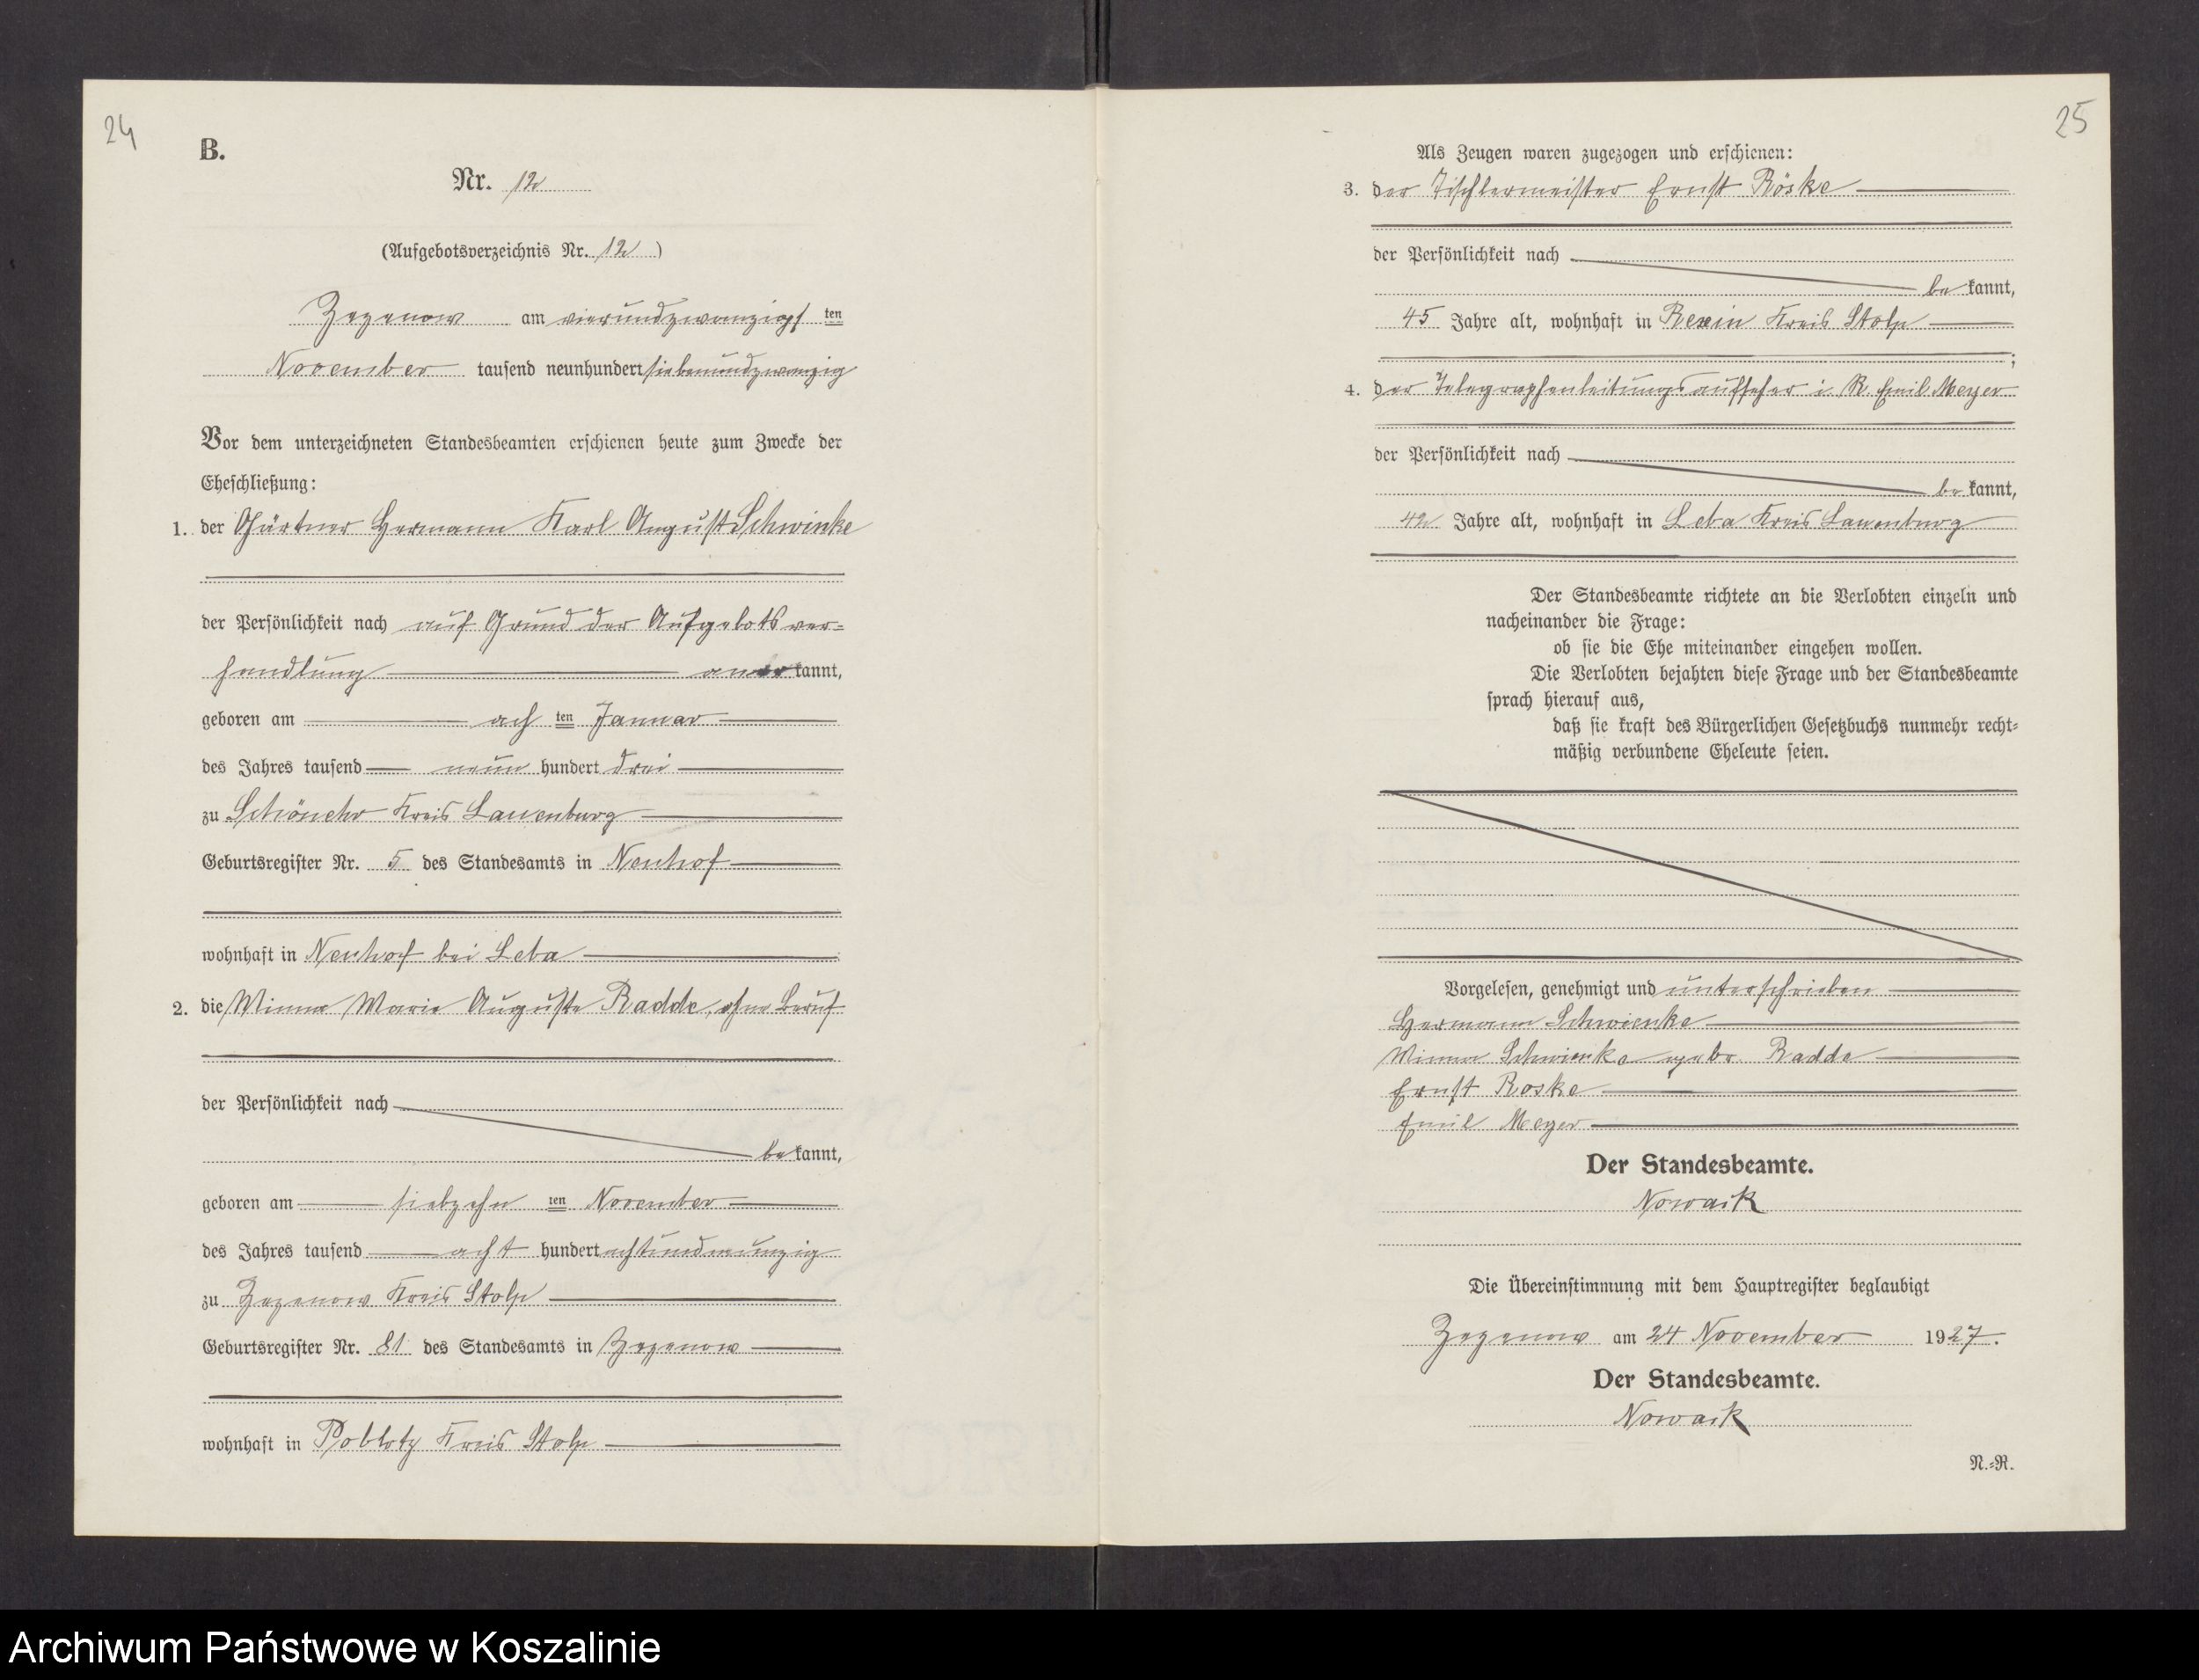 24
B.
Nr. 12
(Aufgebotsverzeichnis Nr. 12)
Zezenow am vierundzwanzigsten
November tausend neunhundert siebenundzwanzig
Vor dem unterzeichneten Standesbeamten erschienen heute zum Zwecke der
Eheschließung:
1. der Gärtner Hermann Karl August Schwinke
der Persönlichkeit nach auf Grund der Aufgebotsver-
handlung anerkannt,
geboren am achten Januar
des Jahres tausend neun hundert drei
zu Schönehr Kreis Lauenburg
Geburtsregister Nr. 5 des Standesamts in Neuhof
wohnhaft in Neuhof bei Leba
2. die Minna Marie Auguste Radde, ohne Beruf
der Persönlichkeit nach
bekannt,
geboren am siebzehnten November
des Jahres tausend acht hundert achtundneunzig
zu Zezenow Kreis Stolp
Geburtsregister Nr. 81 des Standesamts in Zezenow
wohnhaft in Poblotz Kreis Stolp
25
Als Zeugen waren zugezogen und erschienen:
3. der Tischlermeister Ernst Röske
der Persönlichkeit nach
bekannt,
45 Jahre alt, wohnhaft in Rexin Kreis Stolp
;
4. der Telegraphenleitungsaufseher i. R. Emil Meyer
der Persönlichkeit nach
bekannt,
42 Jahre alt, wohnhaft in Leba Kreis Lauenburg
Der Standesbeamte richtete an die Verlobten einzeln und
nacheinander die Frage:
ob sie die Ehe miteinander eingehen wollen.
Die Verlobten bejahten diese Frage und der Standesbeamte
sprach hierauf aus,
daß sie kraft des Bürgerlichen Gesetzbuchs nunmehr recht-
mäßig verbundene Eheleute seien.
Vorgelesen, genehmigt und unterschrieben
Hermann Schwienke
Minna Schwienke gebr. Radde
Ernst Roske
Emil Meyer
Der Standesbeamte.
Nowack
Die Übereinstimmung mit dem Hauptregister beglaubigt
Zezenow am 24 November 1927.
Der Standesbeamte.
Nowack
N.-R.
Archiwum Państwowe w Koszalinie